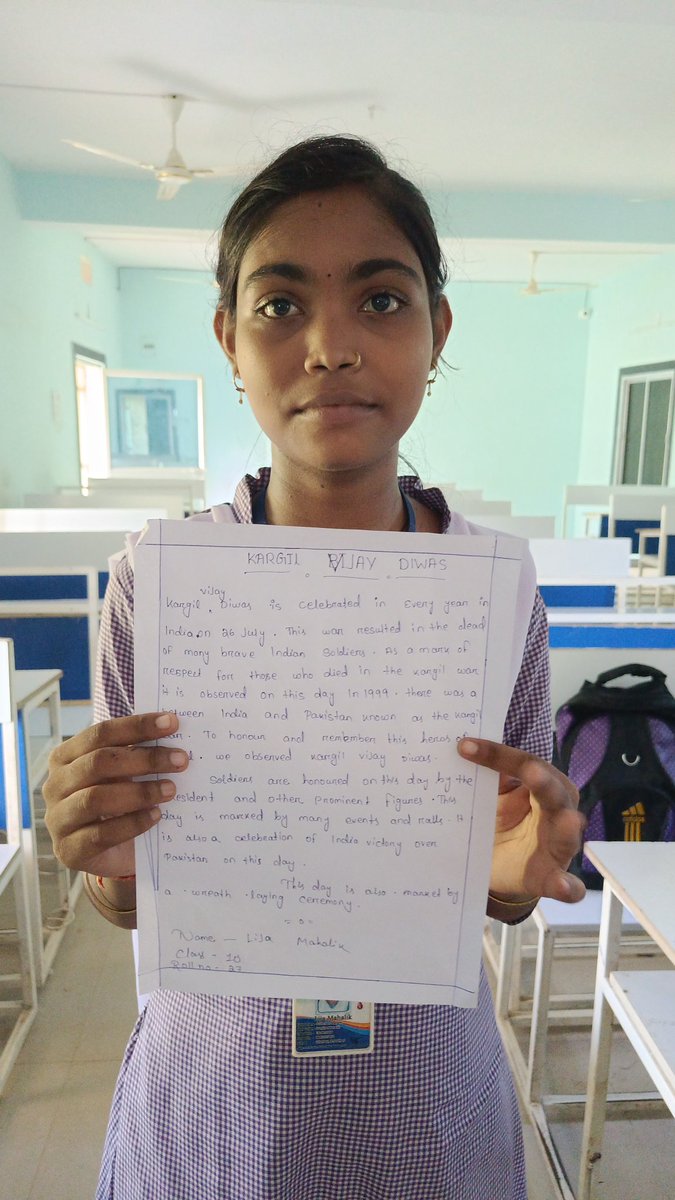 KARGIL VIJAY DIWAS
vijay
Kargil Diwas is celebrated in every year in
India on 26 July. This war resulted in the dead
of many brave Indian Soldiers. As a mark of
respect for those who died in the kargil war
it is observed on this day In 1999. there was a
between India and Pakistan known as the kargil
. To honour and remember this heros of
. we observed kargil vijay diwas.
Soldiers are honoured on this day by the
and other prominent figures. This
day is marked by many events and ralls. It
is also a celebration of India victory over
Pakistan on this day.
This day is also marked by
a wreath laying ceremony.
= 0 =
Name - Lija Mahalik
Class - 10
Roll no - 27
Lija Mahalik
adidas